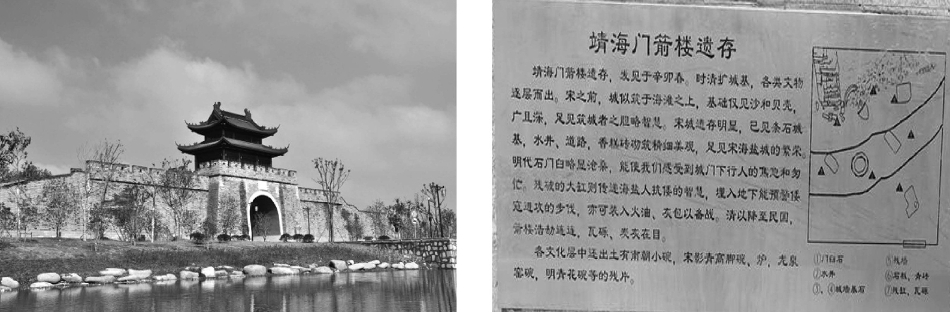 靖海门箭楼遗存
靖海门箭楼遗存，发见于辛卯春。时清扩城基，各类文物
逐层而出。宋之前，城似筑于海滩之上，基础仅见沙和贝壳，
广且深，足见筑城者之胆略智慧。宋城遗存明显，已见条石城
基，水井、道路，香糕砖砌筑精细美观，足见宋海盐城的繁荣。
明代石门臼略显沧桑，能使我们感受到城门下行人的焦急和匆
忙。残破的大缸则传递海盐人抗倭的智慧，埋入地下能预警倭
寇进攻的步伐，亦可装入火油、灰包以备战。清以降至民国，
箭楼浩劫连连，瓦砾、炭灰在目。
各文化层中还出土有南朝小碗，宋影青高脚碗、炉，龙泉
窑碗，明青花碗等的残片。
①门臼石
②水井
③、④城墙基石
⑤残墙
⑥石板、青砖
⑦残缸、瓦砾